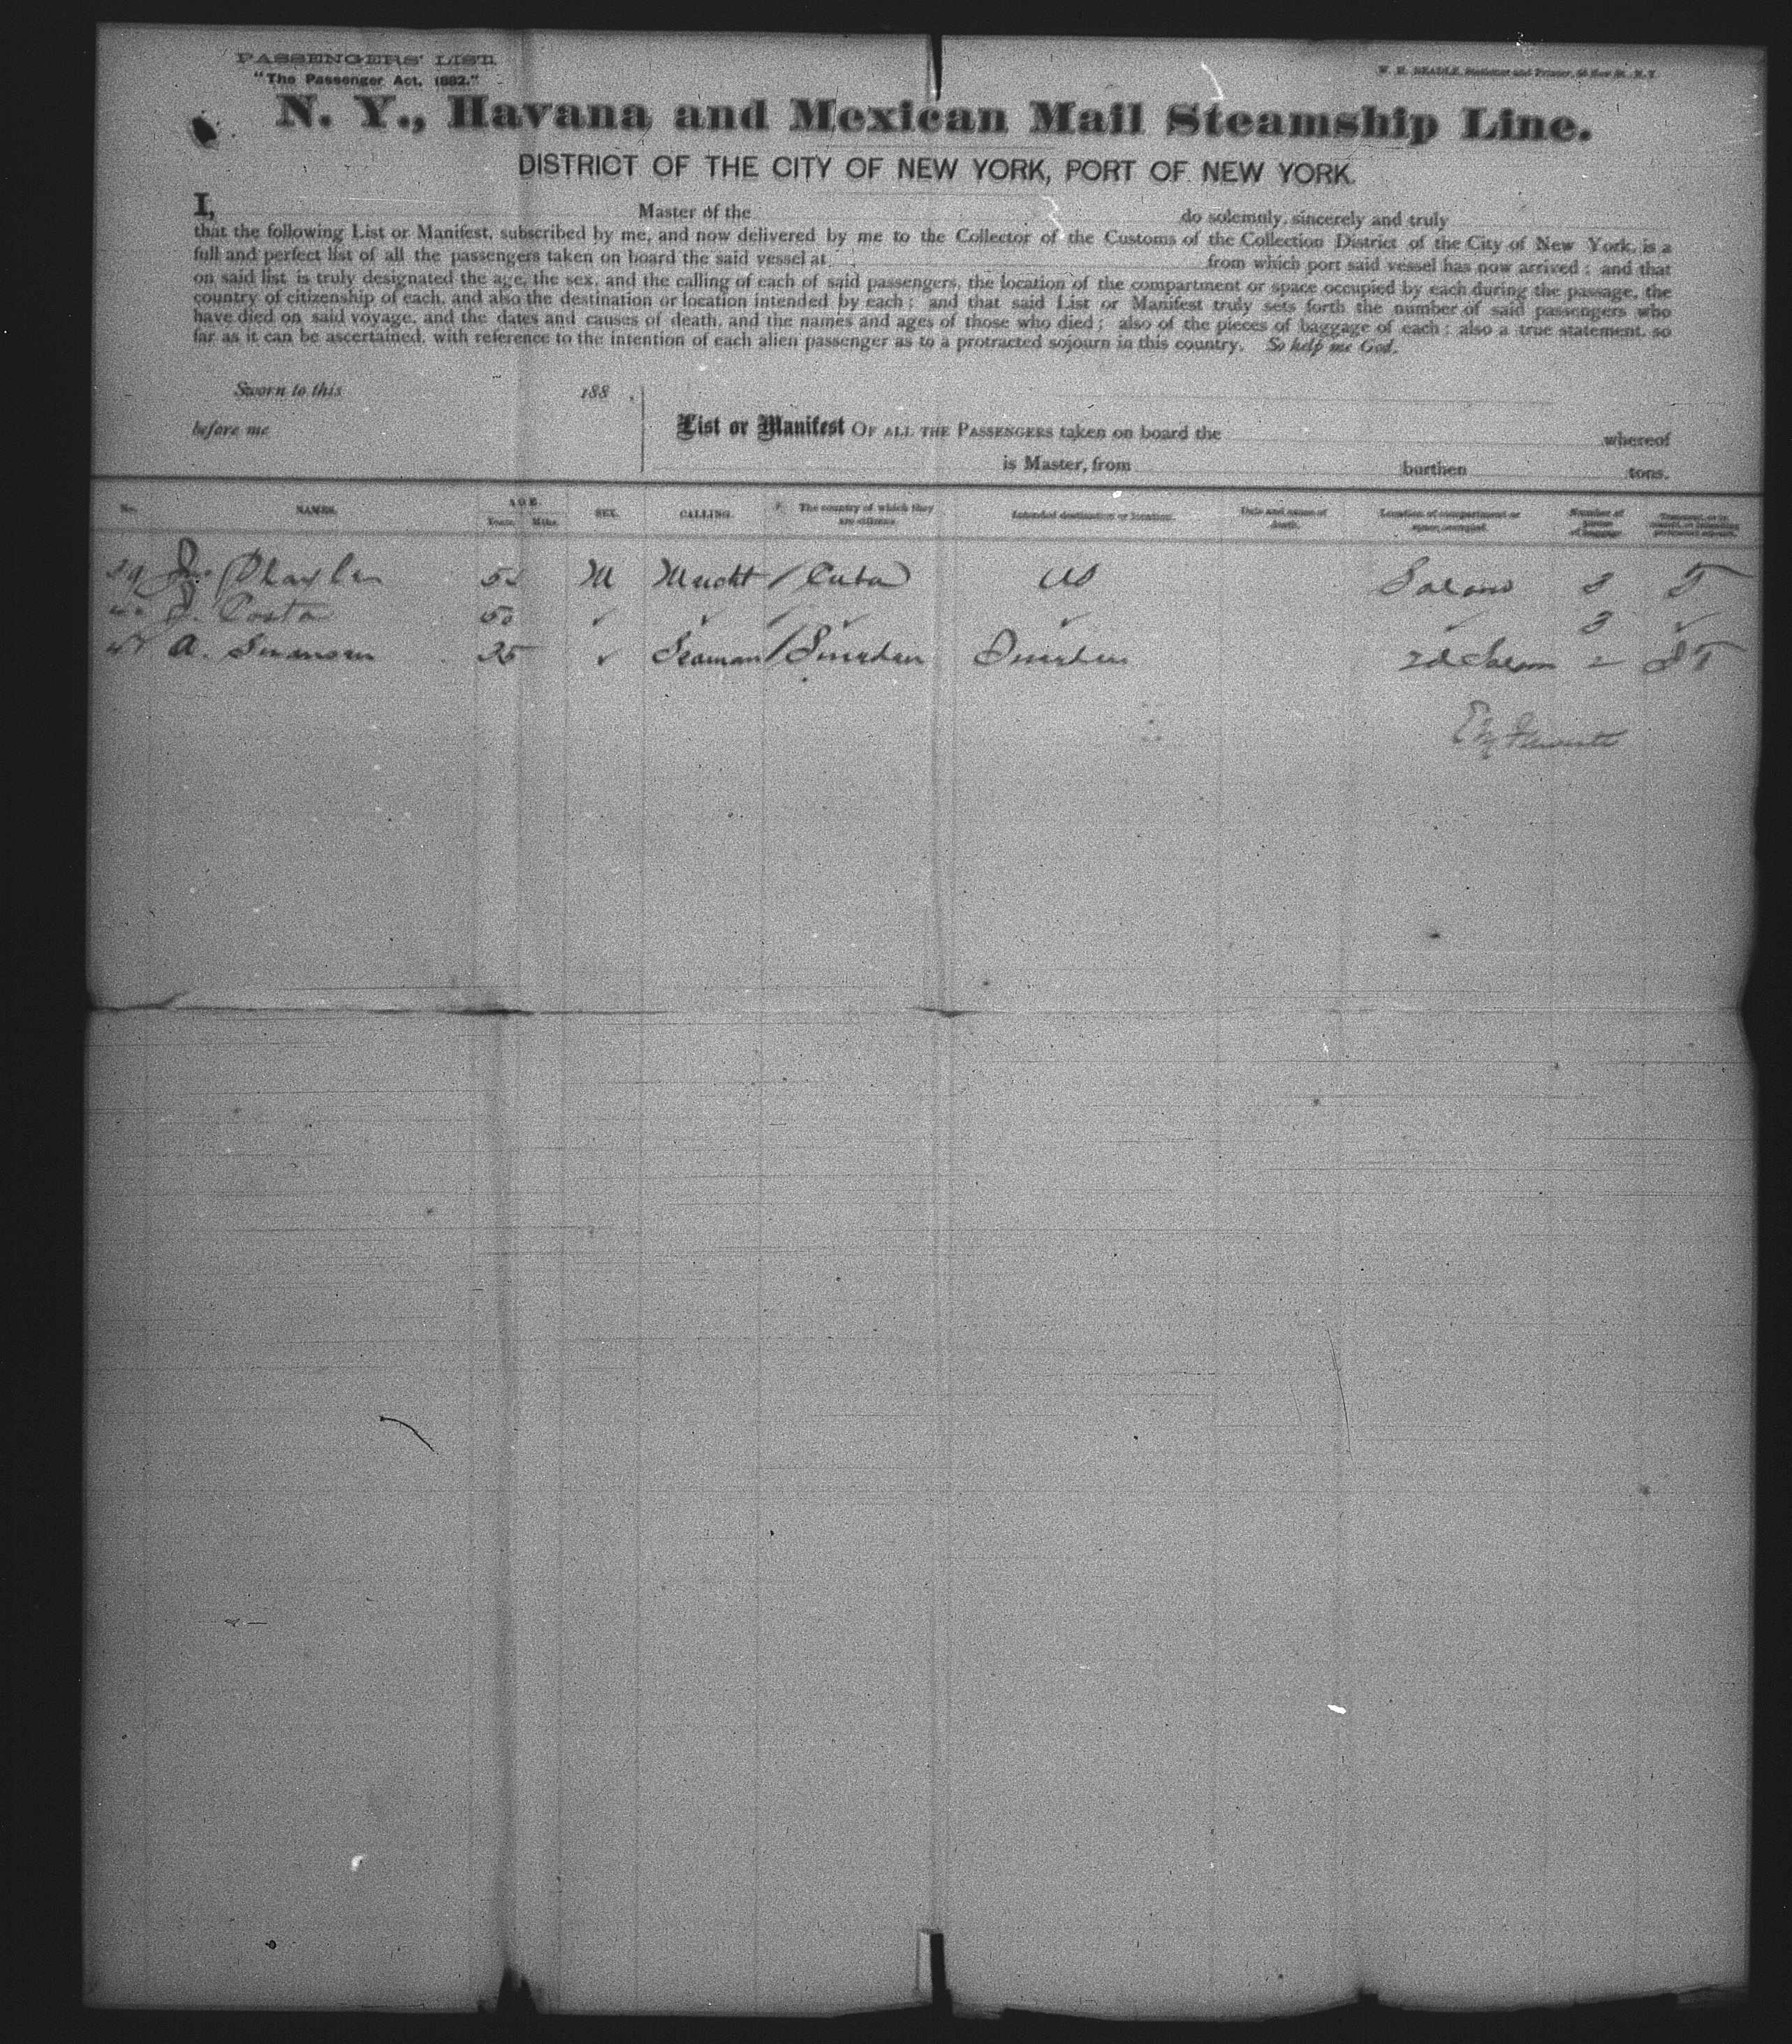 PASSENGERS' LIST.
"The Passenger Act, 1882."
W. H. BEADLE, Stationer and Printer, N. Y.
N. Y., Havana and Mexican Mail Steamship Line.
DISTRICT OF THE CITY OF NEW YORK, PORT OF NEW YORK.
I, Master of the do solemnly, sincerely and truly
that the following List or Manifest, subscribed by me, and now delivered by me to the Collector of the Customs of the Collection District of the City of New York, is a
full and perfect list of all the passengers taken on board the said vessel at from which port said vessel has now arrived; and that
on said list is truly designated the age, the sex, and the calling of each of said passengers, the location of the compartment or space occupied by each during the passage, the
country of citizenship of each, and also the destination or location intended by each; and that said List or Manifest truly sets forth the number of said passengers who
have died on said voyage, and the dates and causes of death, and the names and ages of those who died; also of the pieces of baggage of each; also a true statement, so
far as it can be ascertained, with reference to the intention of each alien passenger as to a protracted sojourn in this country. So help me God.
Sworn to this 188 .
before me
List or Manifest OF ALL THE PASSENGERS taken on board the whereof
is Master, from burthen tons.
No. NAMES. AGE. Years. Mths. SEX. CALLING. The country of which they are citizens. Intended destination or location. Date and cause of death. Location of compartment or space occupied. Number of pieces of baggage.
39 M Mercht / Cuba US Saloon T
40 J. Costa 50 ✓ ✓ ✓ ✓ ✓ ✓ 3 ✓
41 A. Swanson 25 ✓ Seaman / Sweden Sweden 2d Saloon 2